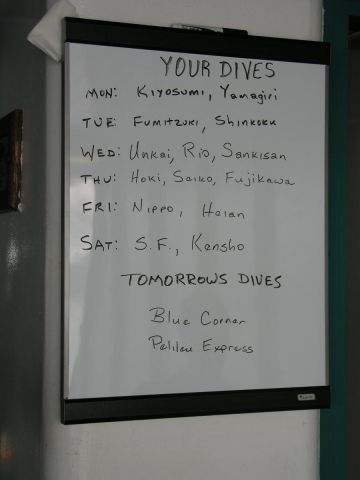 YOUR DIVES
MON: KIYOSUMI, Yamagiri
TUE: FUMITZUKI, SHINKOKU
WED: Unkai, Rio, Sankisan
THU: HOKI, SEIKO, FUJIKAWA
FRI: NIPPO, Heian
SAT: S.F., Kensho
TOMORROWS DIVES
Blue Corner
Pelileu Express